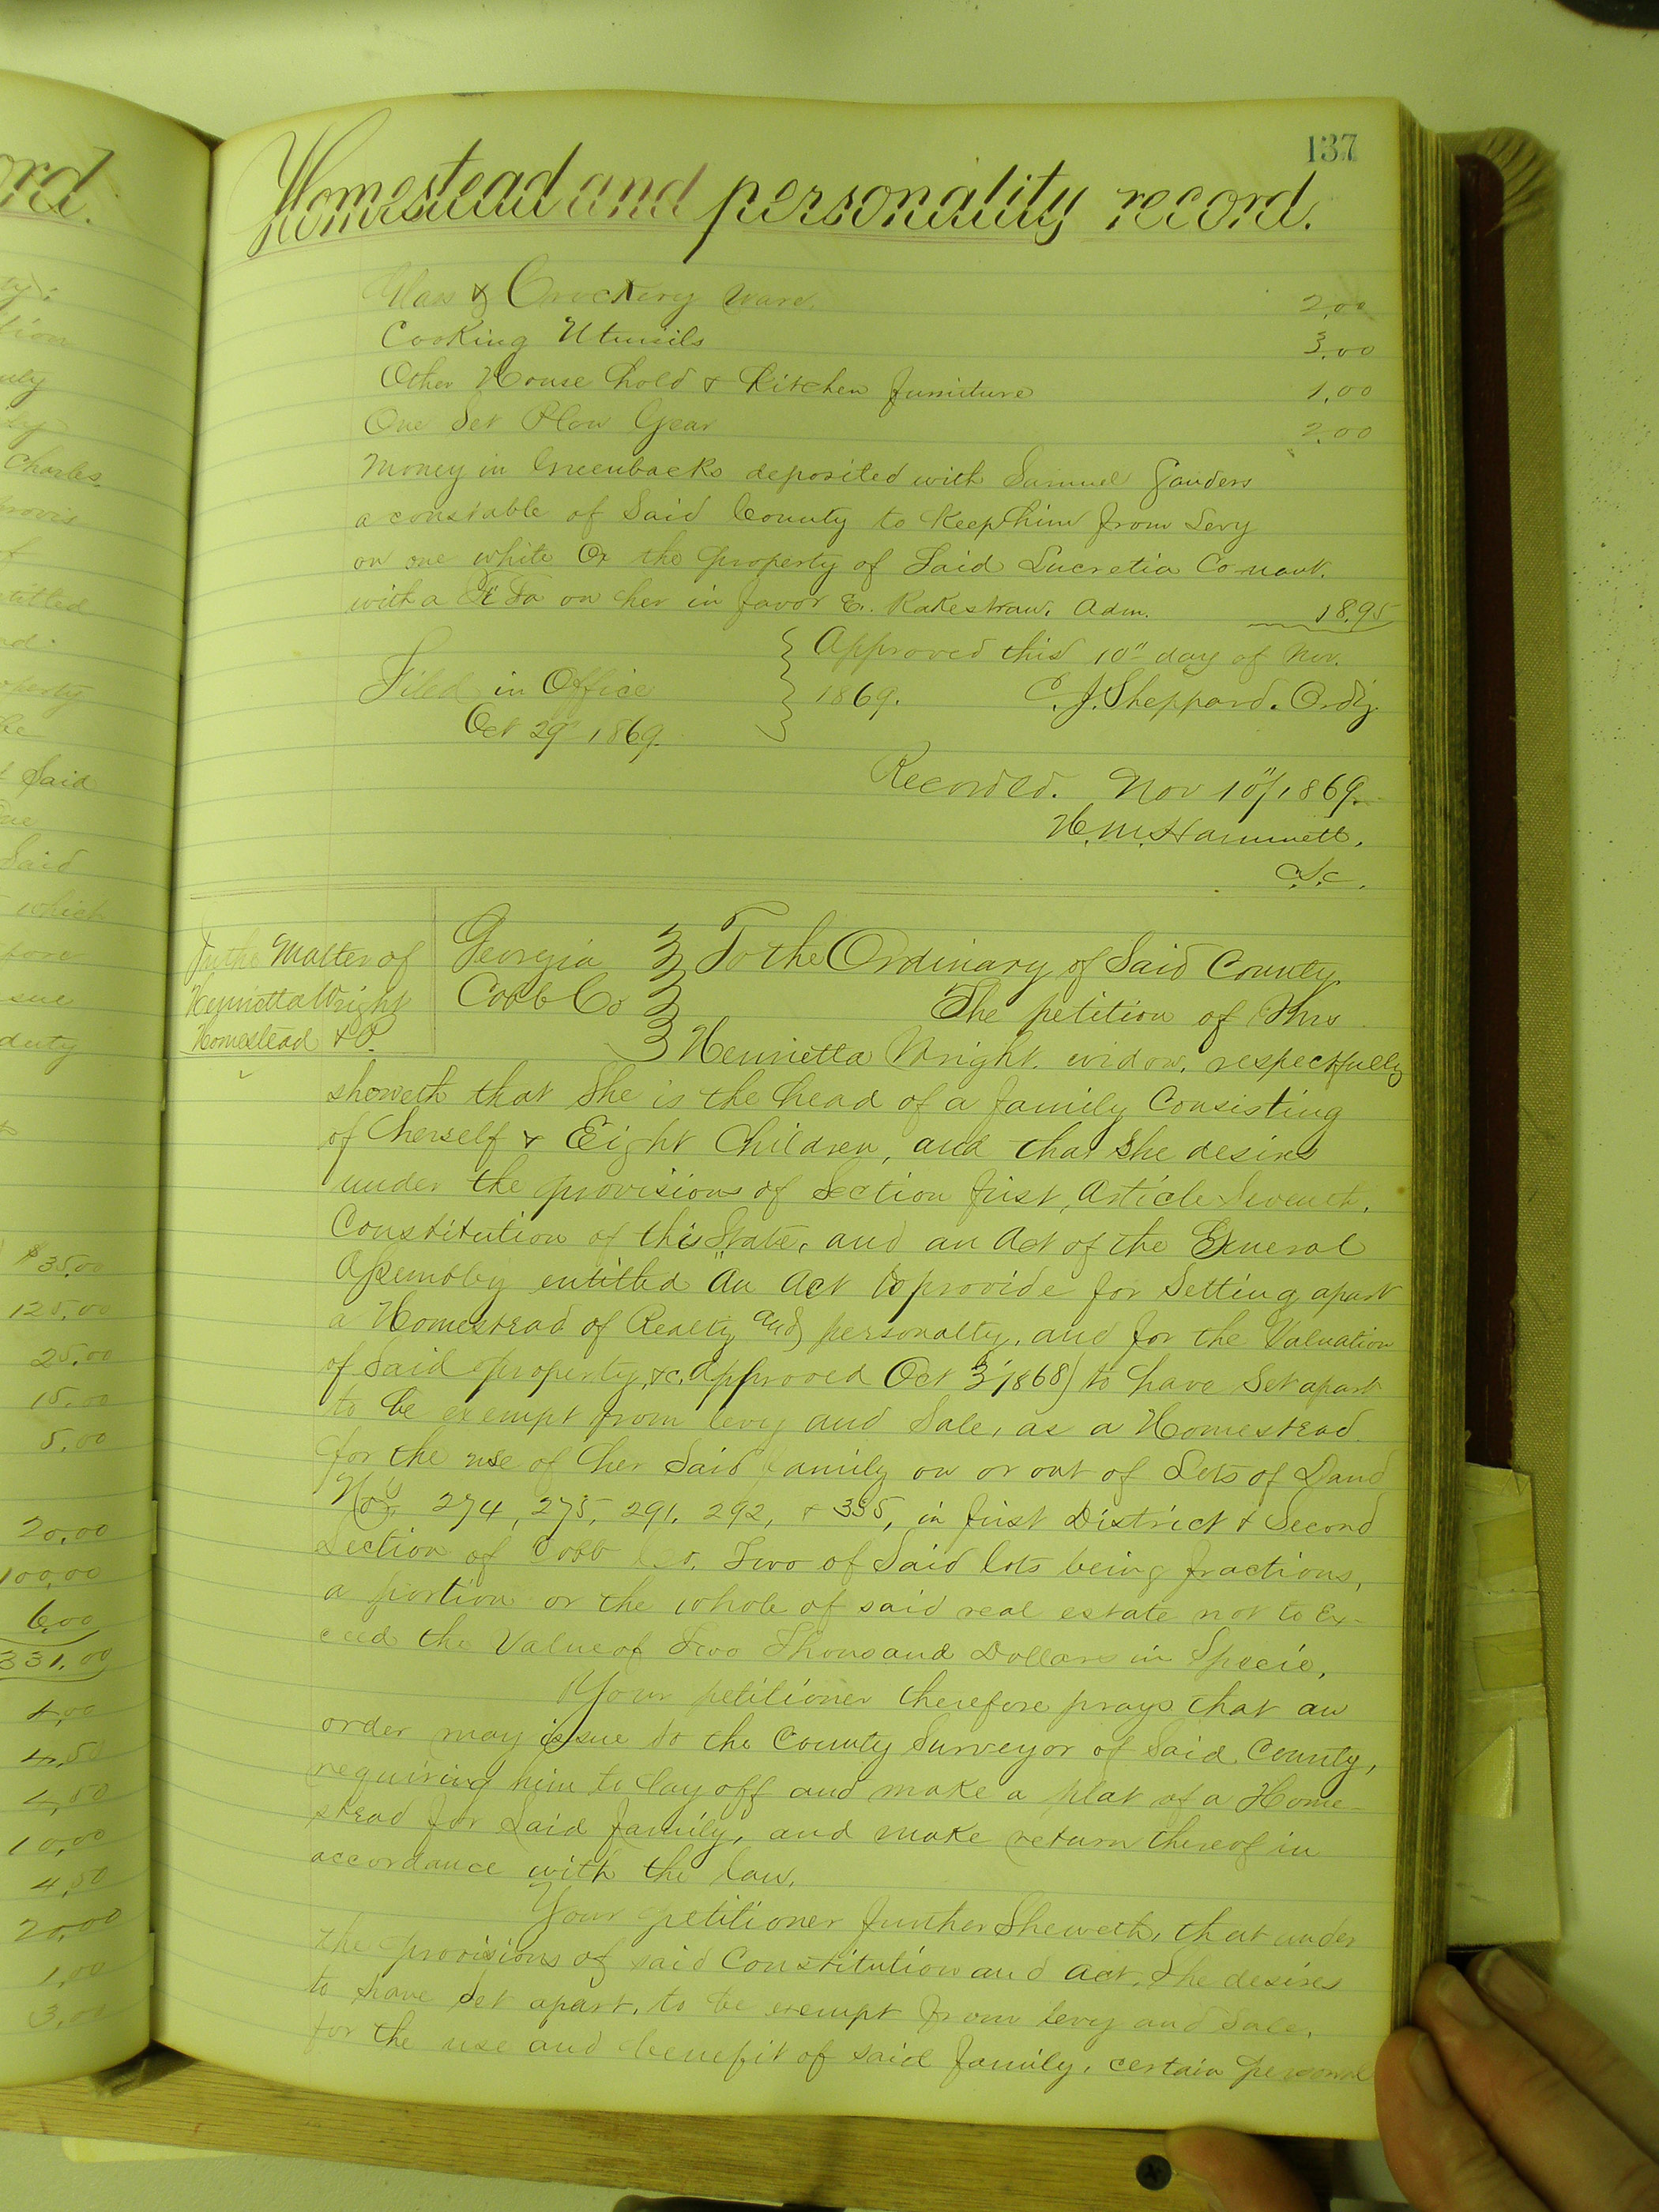 ord.
ty:
tion
Charles
of
titled
nd.
perty
the
Said
Said
which
fore
sue
duty
$35.00
125.00
25.00
15.00
5.00
20.00
100.00
6.00
331.00
4.00
4.50
1.50
10.00
4.50
20.00
1.00
3.00
137
Homestead and personality record.
Glass & Crockery Ware. 2.00
Cooking Utensils 3.00
Other House hold & Kitchen furniture 1.00
One Set Plow Gear 2.00
Money in Greenbacks deposited with Samuel Sanders
a constable of Said County to Keep him from Levy
on one white Ox the property of Said Lucretia Conant.
with a Fi Fa on her in favor E. Rakestraw. Adm. 18.95
Filed in Office
Oct 29" 1869.
Approved this 10" day of Nov.
1869. C. J. Sheppard. Ordy.
Recorded. Nov 10"/1869.
H. M. Hammett.
C.S.C.
In the Matter of
Henrietta Wright
Homestead & P.
Georgia
Cobb Co
To the Ordinary of Said County
The petition of Mrs
Henrietta Wright. widow, respectfully
showeth that She is the head of a family Consisting
of herself & Eight Children, and that She desires
under the provisions of Section first, Article Seventh,
Constitution of this State, and an Act of the General
Assembly entitled "An Act to provide for Setting apart
a Homestead of Realty and personalty, and for the Valuation
of Said property, &c. Approved Oct 3' 1868) to have Set apart
to be exempt from levy and Sale, as a Homestead
for the use of her Said family on or out of Lots of Land
Nos. 274, 275, 291, 292, & 335, in first District & Second
Section of Cobb Co. Two of Said lots being fractions,
a portion or the whole of said real estate not to Ex-
ceed the Value of Two Thousand Dollars in Specie.
Your petitioner therefore prays that an
order may issue to the County Surveyor of Said County,
requiring him to lay off and make a plat of a Home-
stead for Said family, and make return thereof in
accordance with the law.
Your petitioner further Sheweth, that under
the provisions of said Constitution and Act, She desires
to have Set apart, to be exempt from levy and Sale,
for the use and benefit of said family, certain personal